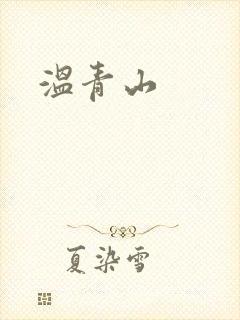 溫青山
夏染雪